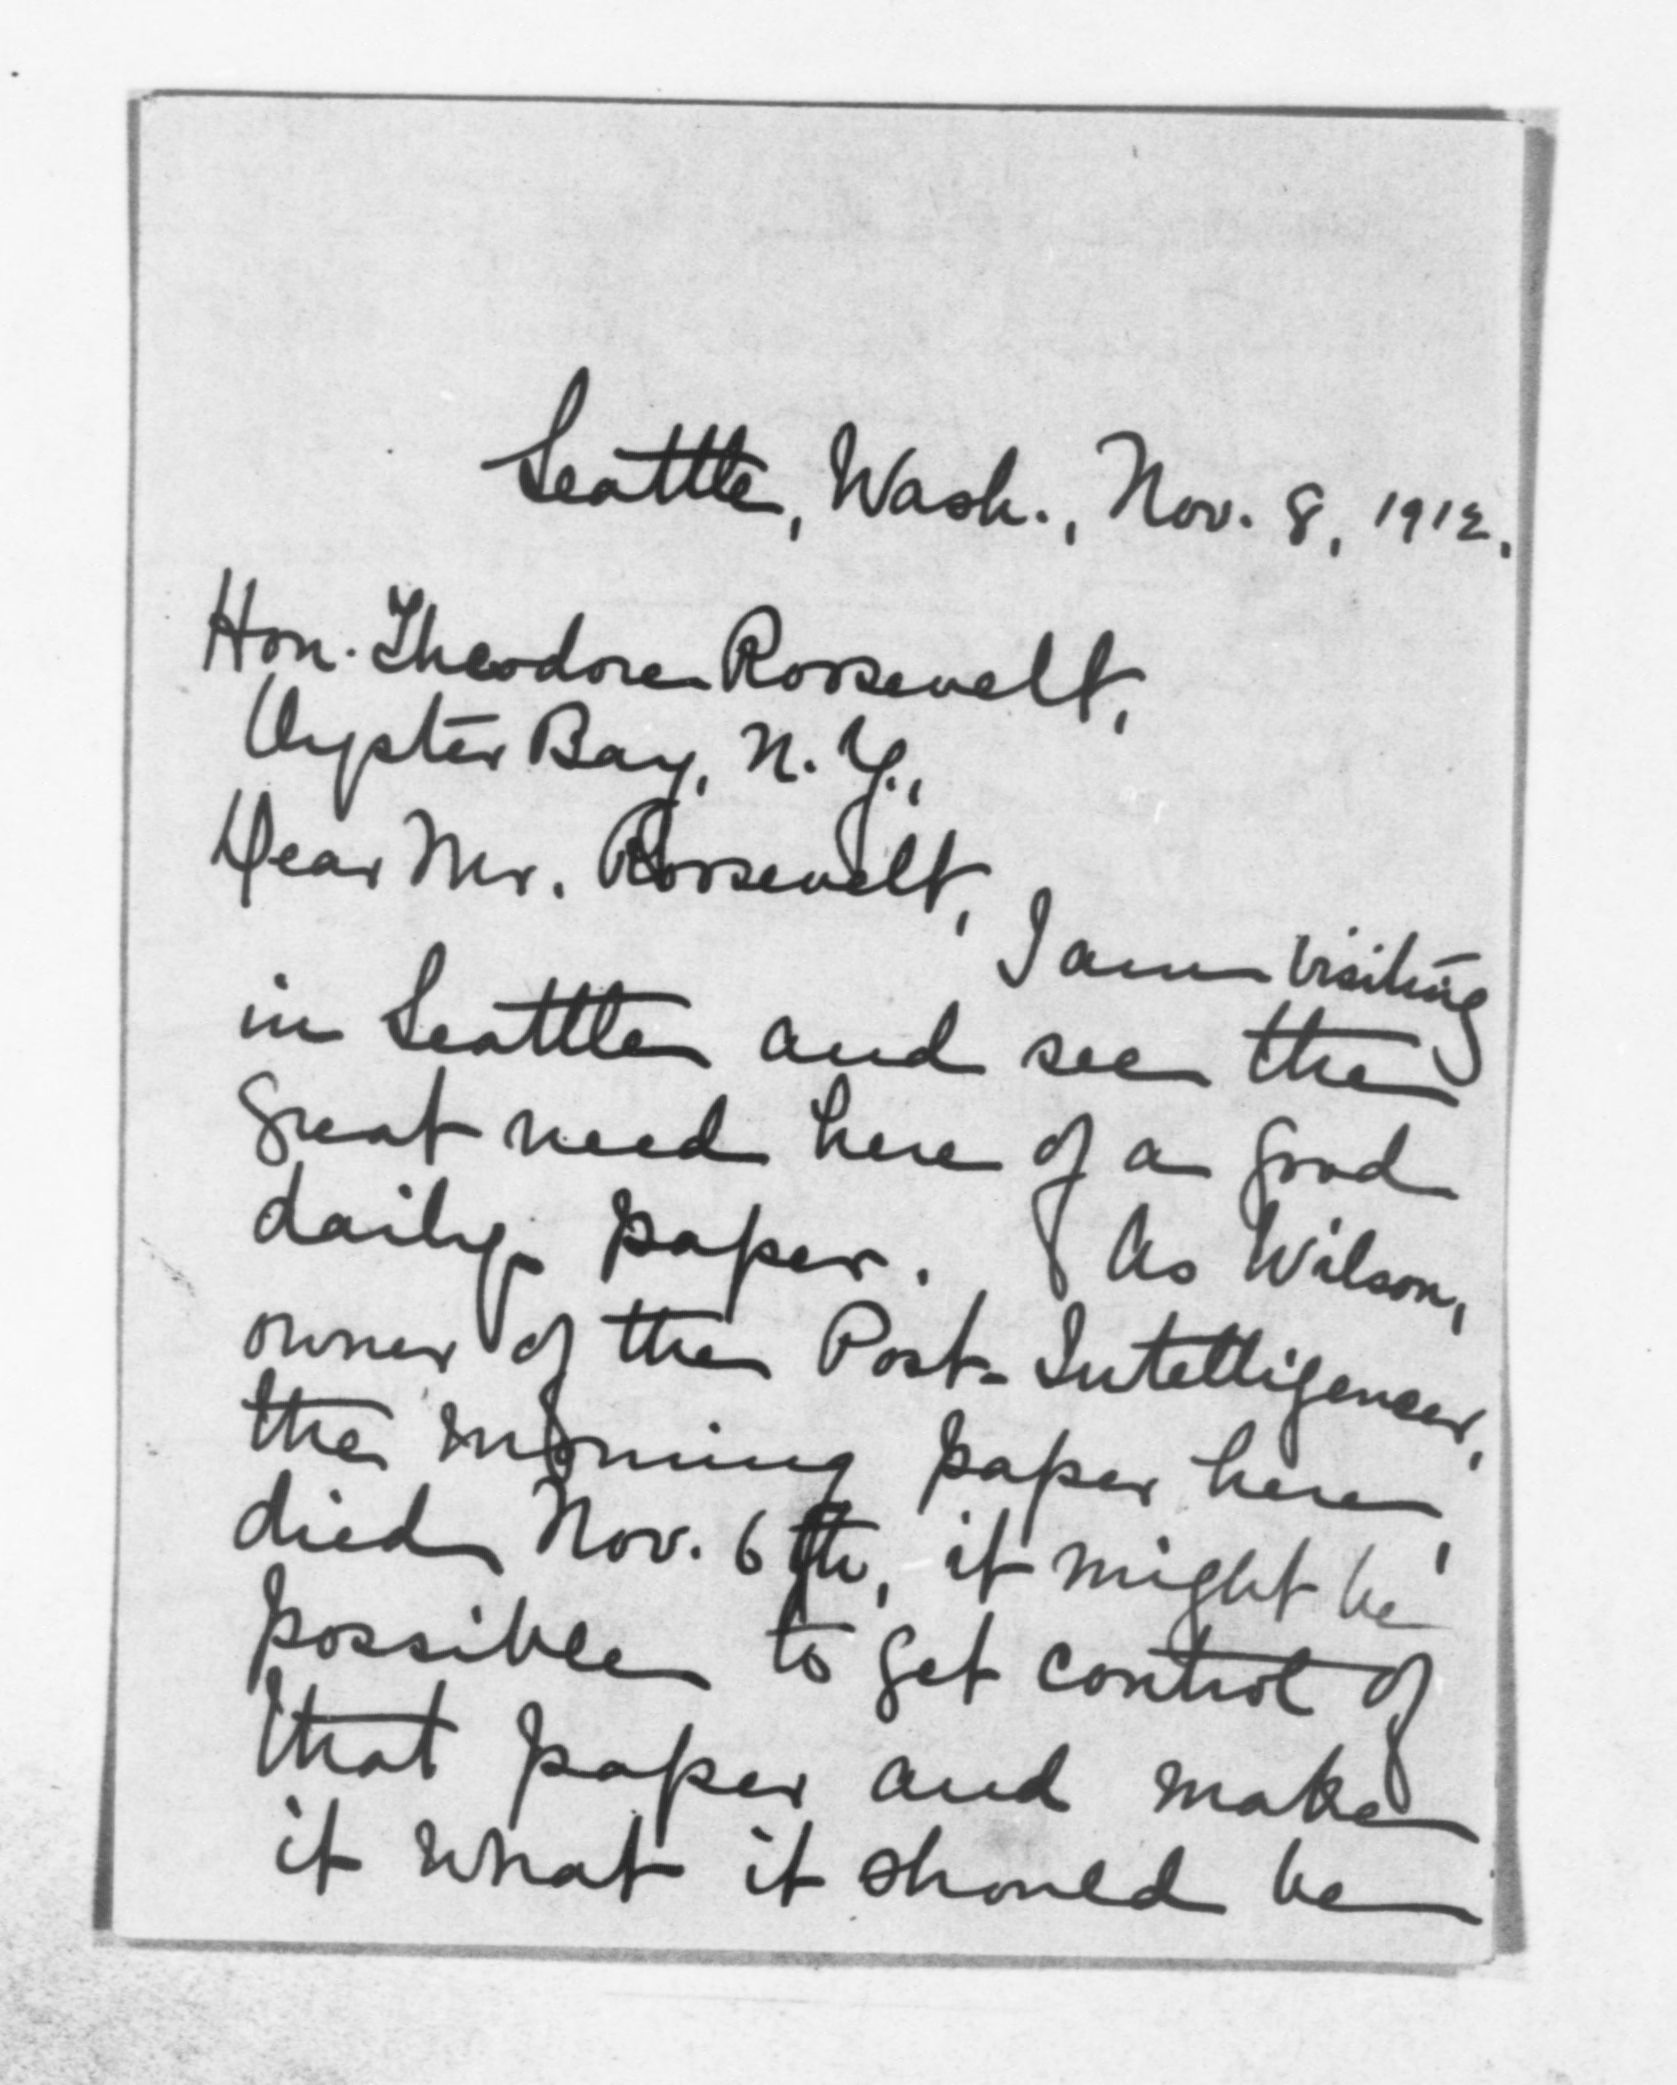 Seattle, Wash., Nov. 8, 1912.
Hon. Theodore Roosevelt,
Oyster Bay, N.Y.,
Dear Mr. Roosevelt,
I am visiting
in Seattle and see the
great need here of a good
daily paper. As Wilson,
owner of the Post-Intelligencer,
the morning paper here,
died Nov. 6th, it might be
possible to get control of
that paper and make
it what it should be